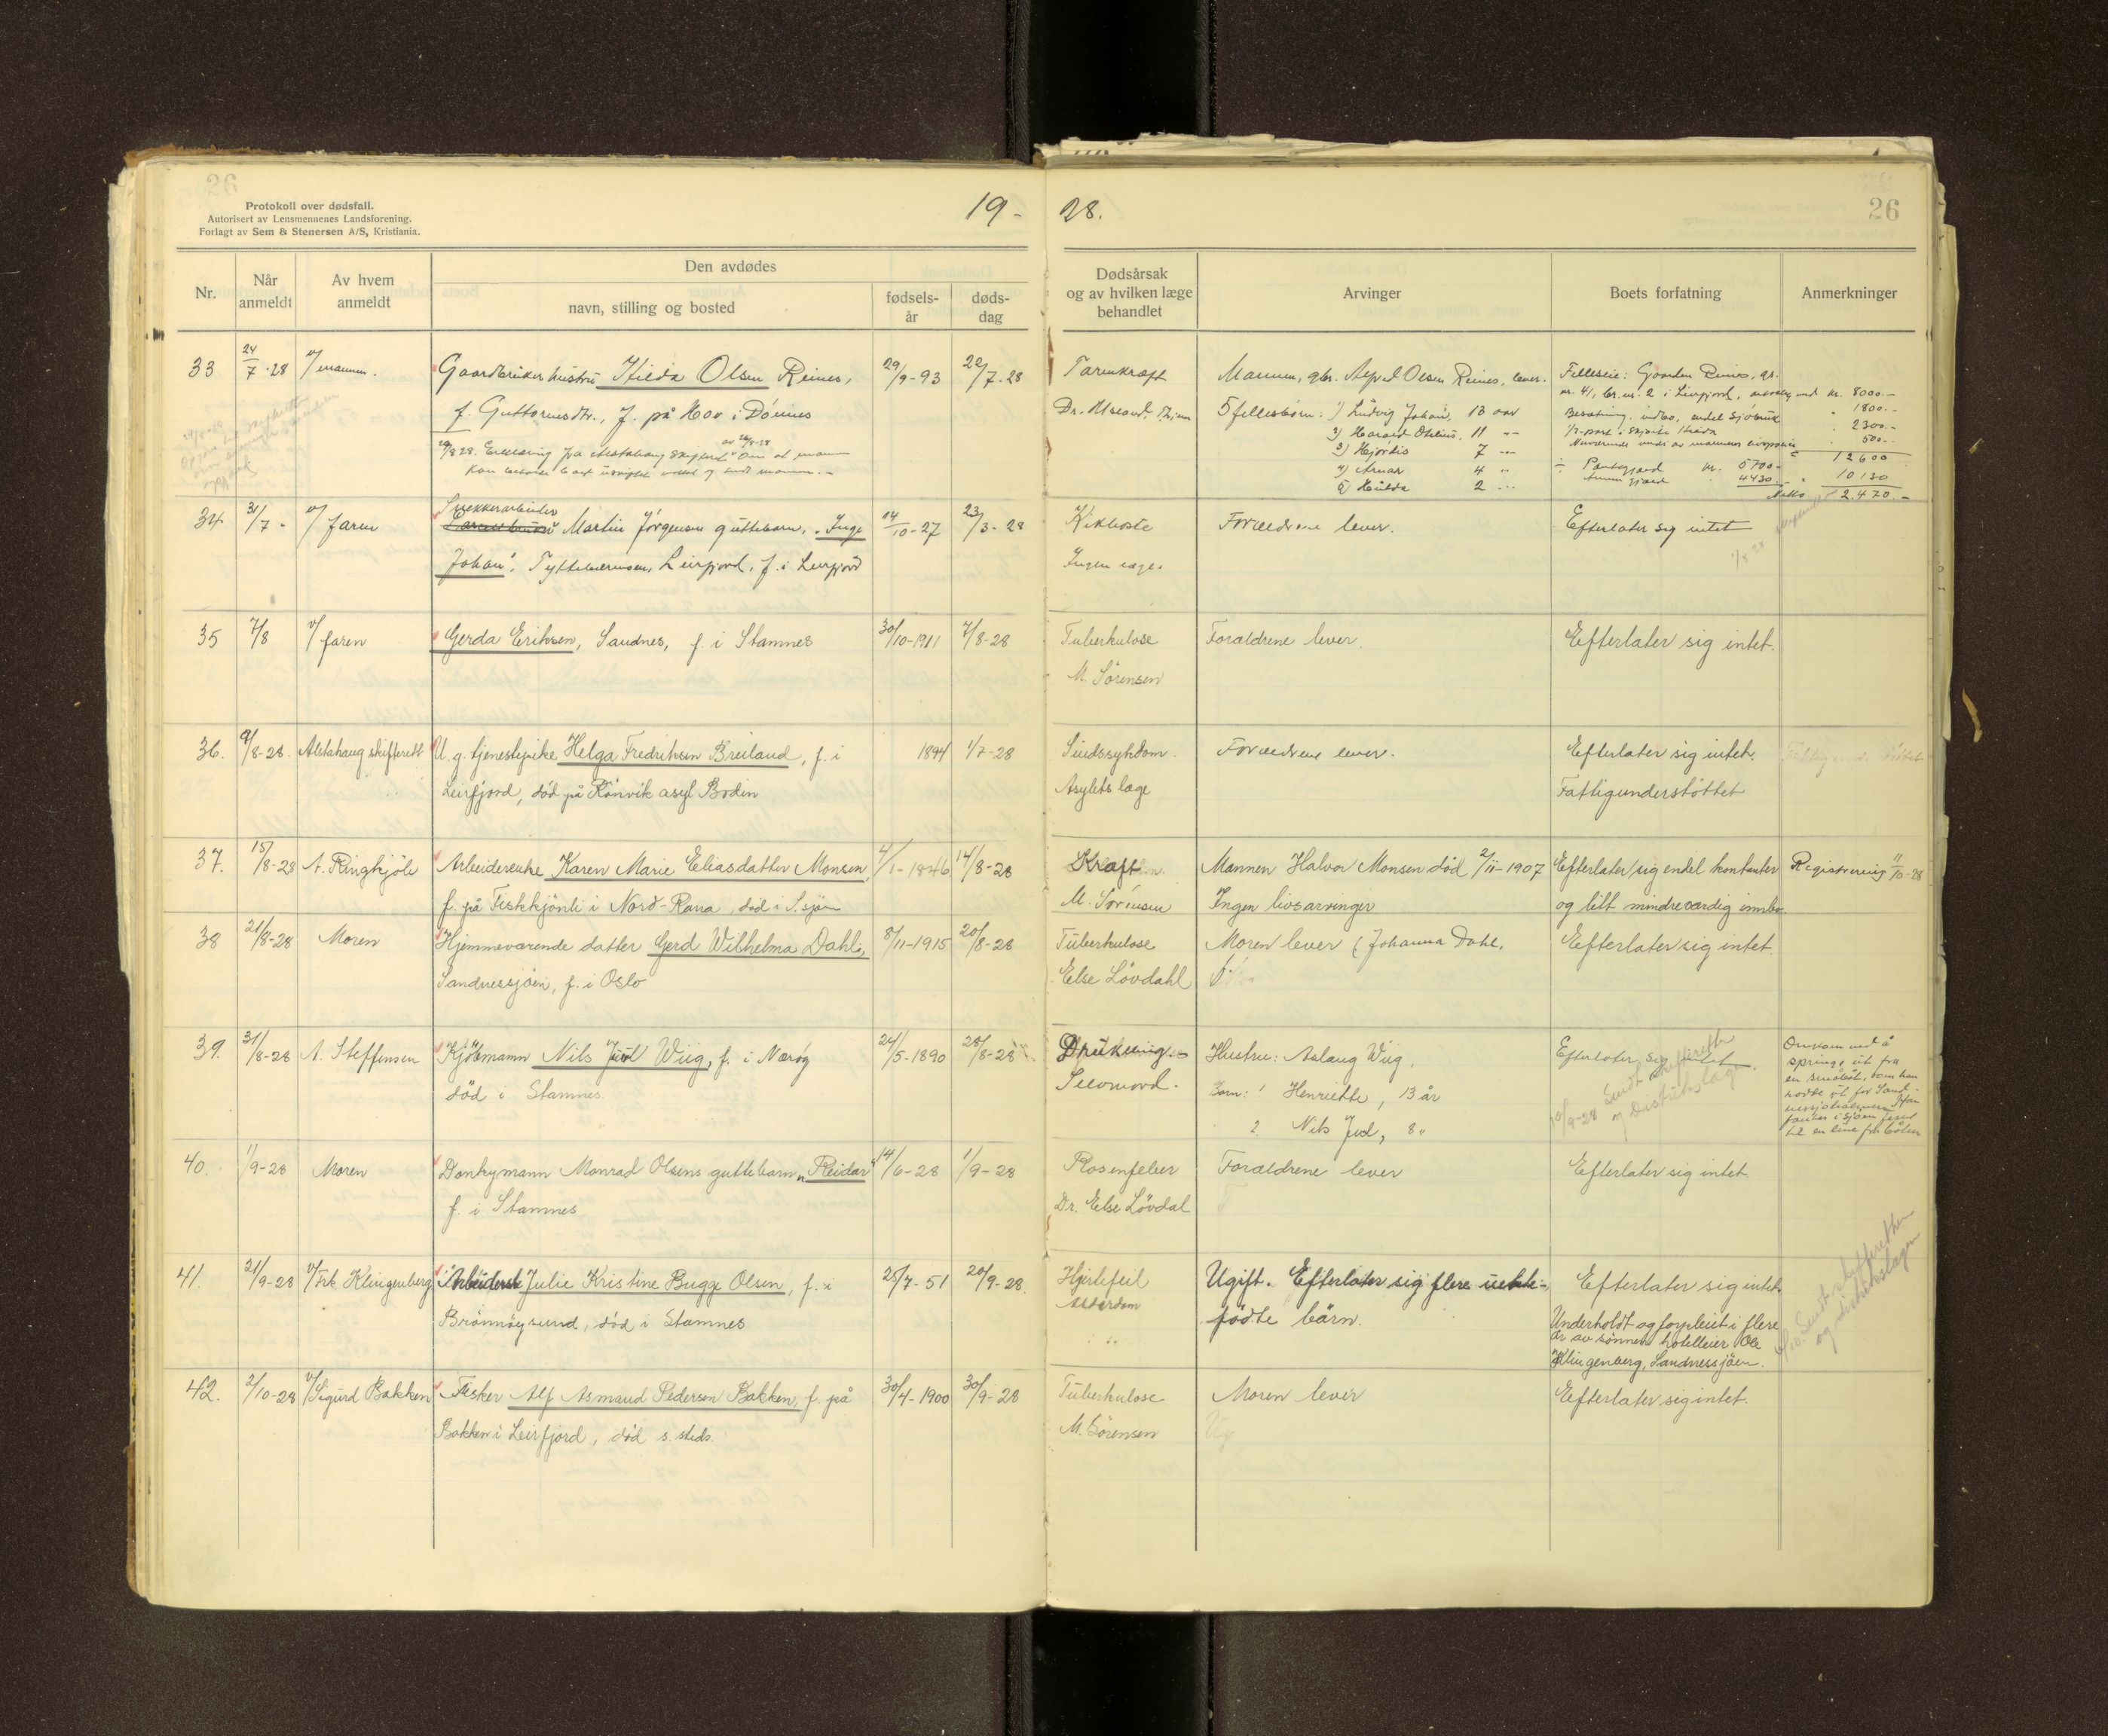 26
Protokoll over dødsfall.
Autorisert av Lensmennenes Landsforening.
Forlagt av Sem & Stenersen A/S, Kristiania.
19-
28.
26
Nr.
Når anmeldt
Av hvem anmeldt
Den avdødes
navn, stilling og bosted
fødsels-år
døds-dag
Dødsårsak og av hvilken læge behandlet
Arvinger
Boets forfatning
Anmerkninger
33 24/7-28 v/ mannen. Gaardbruker hustru Hilda Olsen Reines, 29/9-93 22/7-28
f. Guttormsdtr., f. på Hov i Dönnes
Tarmkræft
Mannen, gbr. Olsen Reines, lever.
5 fellesbörn: 1) Ludvig Johan, 13 aar
2) Harald 11 "
3) Hjördis 7 "
4) Arnar 4 "
5) Hilda 2 "
Felleseie: Gaarden Reines, gr.
nr. 41, br.nr. 2 i Leirfjord, kr. 8000.-
1800.-
2300.-
500.-
12600
kr. 5700.-
4430.- 10130
Netto 2.470.-
34 31/7 - v/ faren Martin Jörgensen guttebarn, "Inge
Johan", Leirfjord, f. i Leirfjord 14/10-27 23/3-28
Kikhoste
Ingen læge.
Forældrene lever.
Efterlater sig intet
35 7/8 v/ faren Gerda Eriksen, Sandnes, f. i Stamnes 30/10-1911 7/8-28
Tuberkulose
M. Sörensen
Forældrene lever.
Efterlater sig intet.
36. 9/8-28. Alstahaug skifterett U. g. tjenestepike Helga Fredriksen Breiland, f. i 1894 1/7-28
Leirfjord, död på Rönvik asyl Bodin
Sindssygdom.
Asylets læge
Forældrene lever.
Efterlater sig intet.
Fattigunderstöttet
37. 15/8-28 A. Ringkjöb Arbeiderenke Karen Marie Eliasdatter Monsen, 4/1-1846 14/8-28
f. på Fiskkjönli i Nord-Rana, död i S.sjöen
Kræft
M. Sörensen
Mannen Halvor Monsen död 2/11-1907
Ingen livsarvinger
Efterlater sig endel kontanter
og litt mindreværdig innbo.
Registrering 11/10-28
38 21/8-28 Moren Hjemmeværende datter Gerd Wilhelma Dahl, 8/11-1915 20/8-28
Sandnessjöen, f. i Oslo
Tuberkulose
Else Lövdahl
Moren lever (Johanna Dahl.
Efterlater sig intet.
39. 31/8-28 A. Steffensen Kjöbmann Nils Juul Wiig, f. i Næröy 24/5-1890 28/8-28
död i Stamnes
Drukning.-
Selvmord.
Hustru: Aslaug Wiig,
Barn: 1 Henriette, 13 år
2. Nils Juul, 8 "
Efterlater sig intet.
10/9-28 Sendt skifterett
og Distriktslæge
Omkom ved å
springe ut fra
en småbåt, som han
rodde ut for Sand-
til en line fra båten
40. 1/9-28 Moren Donkymann Monrad Olsens guttebarn "Reidar" 14/6-28 1/9-28
f. i Stamnes
Rosenfeber
Dr. Else Lövdal
Forældrene lever
Efterlater sig intet.
41. 21/9-28 v/Frk. Klingenberg Julie Kristine Bugge Olsen, f. i 25/7-51 20/9-28.
Brönnöysund, död i Stamnes
Hjertefeil
Alderdom
Ugift. Efterlater sig flere uekte-
födte börn.
Efterlater sig intet.
Underholdt og forpleiet i flere
år av sönnen hotelleier Ole
Klingenberg, Sandnessjöen.
Sendt skifteretten
og distriktslægen
42. 2/10-28 v/Sigurd Bakken Fisker Alf Asmund Pedersen Bakken, f. på 30/4-1900 30/9-28
Bakken i Leirfjord, död s. steds.
Tuberkulose
M. Sörensen
Moren lever
Efterlater sig intet.